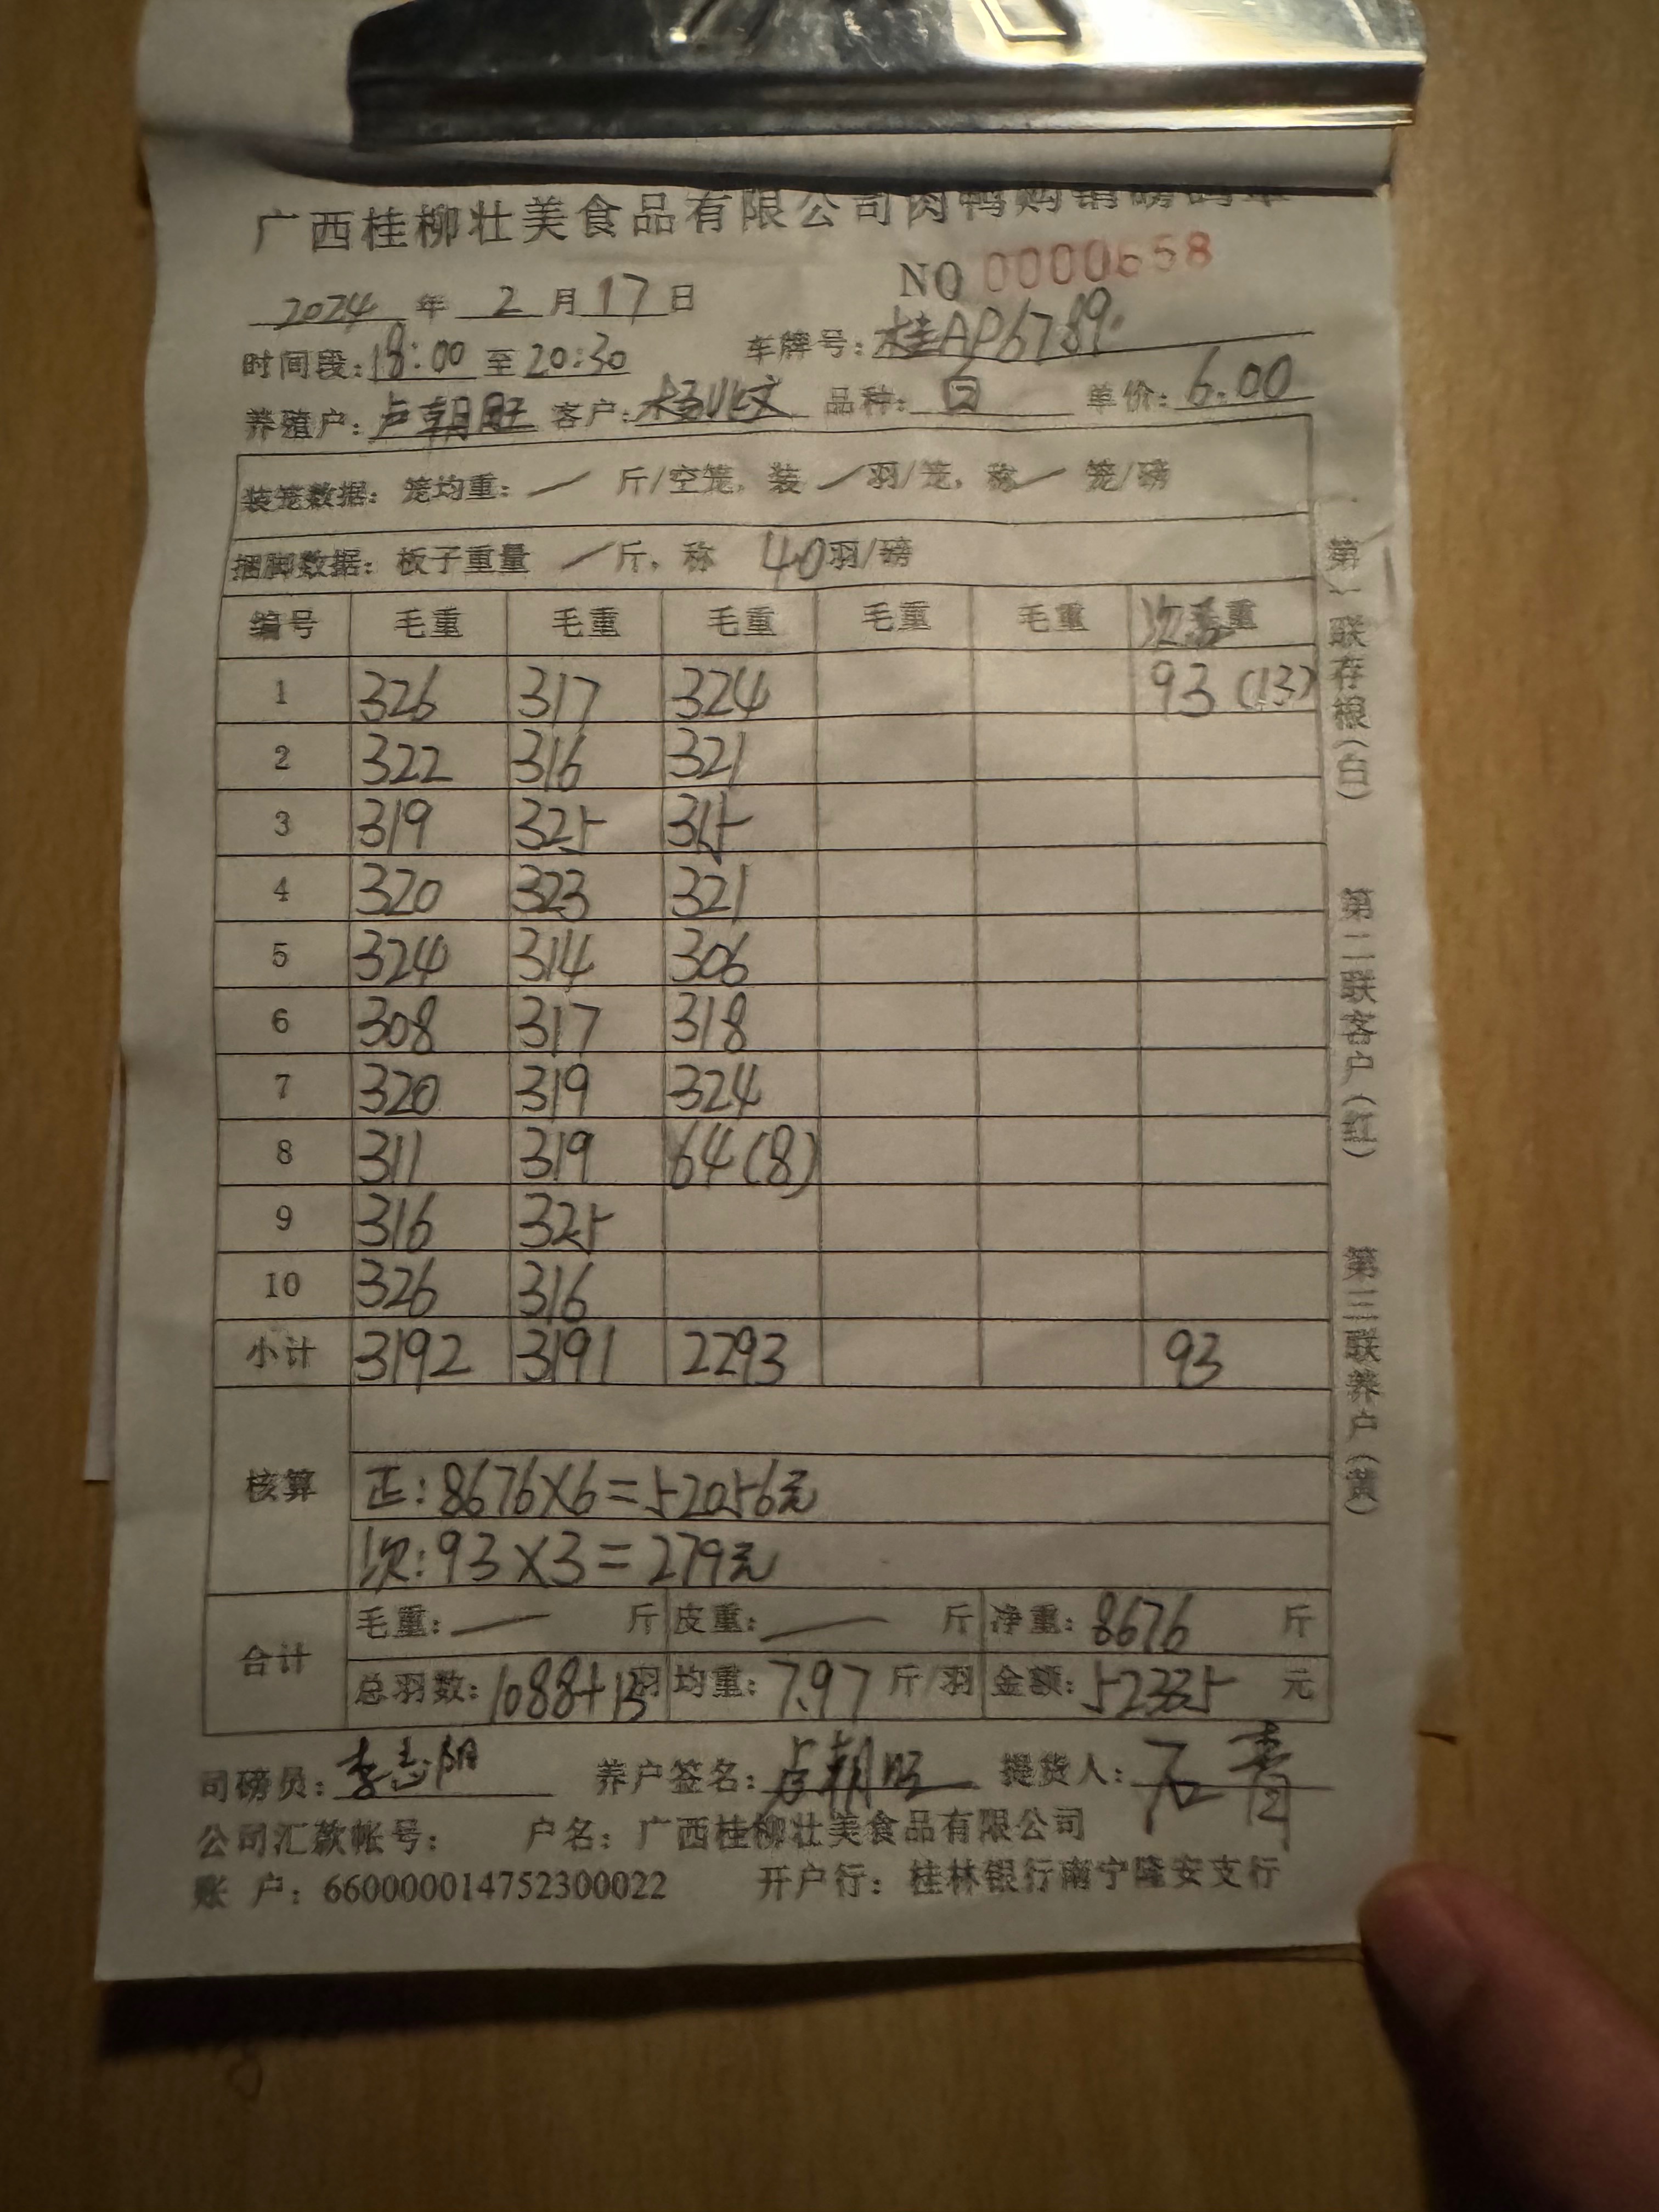 广西桂柳壮美食品有限公司肉鸭购销磅码单
NO 0000658
2024 年 2 月 17 日
时间段: 18:00 至 20:30 车牌号: 桂AP6789
养殖户: 卢朝旺 客户: 品种: 白 单价: 6.00
装笼数据: 笼均重: — 斤/空笼, 装 — 羽/笼, 称 — 笼/磅
捆脚数据: 板子重量 — 斤, 称 40 羽/磅
编号 毛重 毛重 毛重 毛重 毛重 次 重
1 326 317 324 93 (13)
2 322 316 321
3 319 325 315
4 320 323 321
5 324 314 306
6 308 317 318
7 320 319 324
8 311 319 64 (8)
9 316 325
10 326 316
小计 3192 3191 2293 93
核算
正: 8676×6=52056元
次: 93×3=279元
合计 毛重: — 斤 皮重: — 斤 净重: 8676 斤
总羽数: 1088+13 羽 均重: 7.97 斤/羽 金额: 52335 元
司磅员: 养户签名: 卢朝旺 提货人:
公司汇款帐号: 户名: 广西桂柳壮美食品有限公司
账 户: 660000014752300022 开户行: 桂林银行南宁隆安支行
第一联存根(白)
第二联客户(红)
第三联养户(黄)